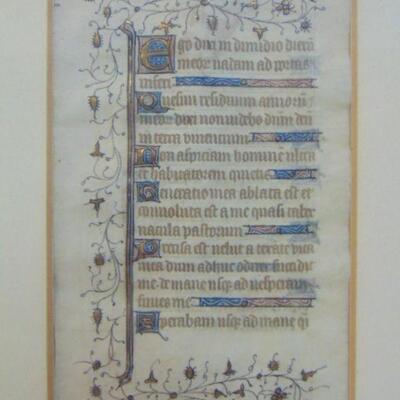 Ego dixi in dimidio dierũ
meoꝝ uadam ad portas
inferi
Quesiui residuum annorũ
meoꝝ dixi non uidebo dñm deũ
in terra uiuentium
Non aspiciam hominẽ ultra
et habitatorem quietis
Generatio mea ablata est et
conuoluta est a me quasi taber
nacula pastorum
Precisa est uelut a texẽte uita
mea dum adhuc ordirer succidit
me de mane usqꝫ ad uesperam
finies me
Sperabam usqꝫ ad mane qi